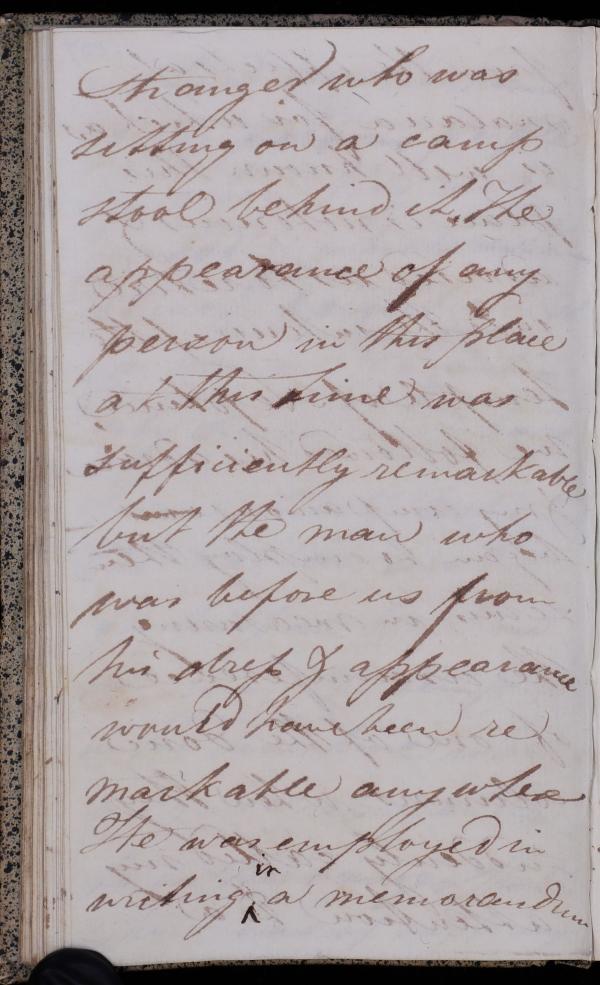 stranger who was
sitting on a camp
stool behind it. The
appearance of any
person in this place
at this time was
sufficiently remarkable
but the man who
was before us from
his dress & appearance
would have been re
markable anywhere
He was employed in
writing in a memorandum